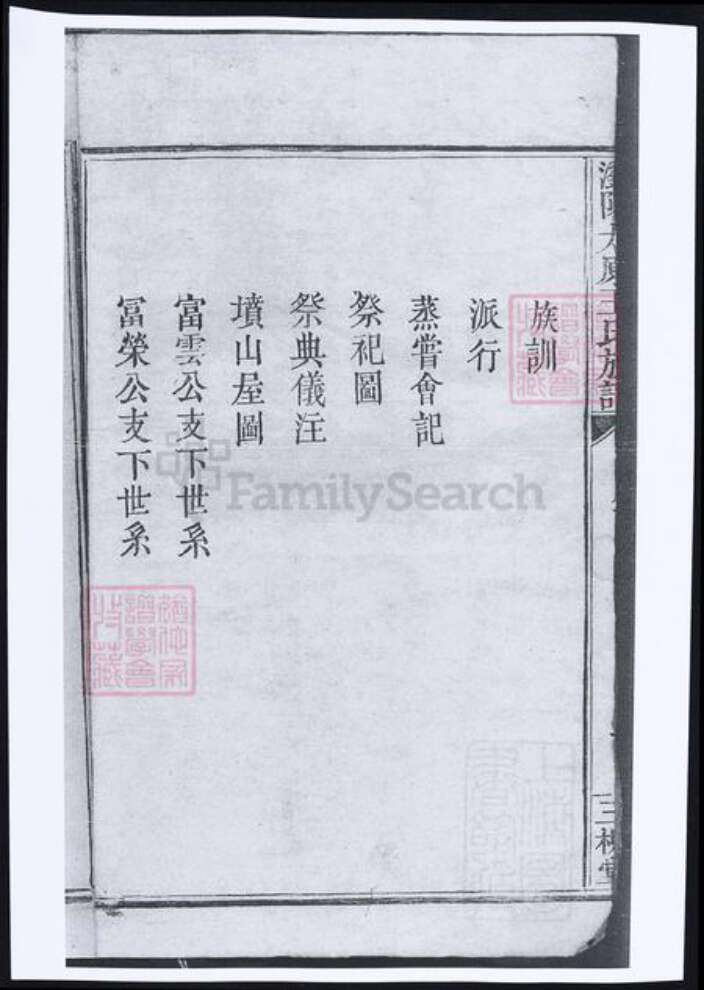 族訓
派行
蒸嘗會記
祭祀圖
祭典儀注
墳山屋圖
富雲公支下世系
冨榮公支下世系
太原王氏族譜
三槐堂
FamilySearch